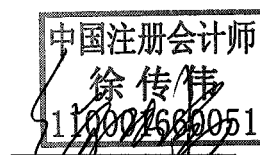 中国注册会计师
徐传伟
110001660051